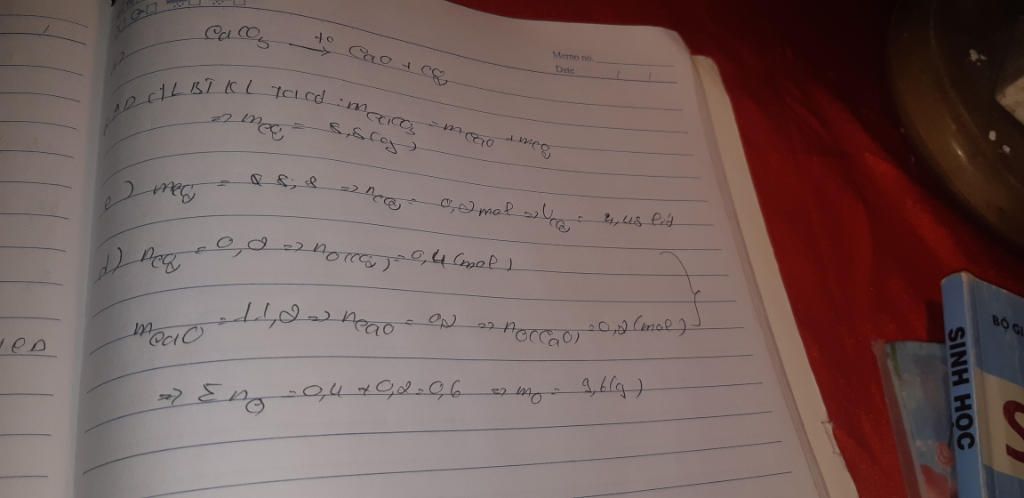 CaCO3 →t° CaO + CO2
Memo no.
Date / /
AD ĐLBTKL ta có : mCaCO3 = mCaO + mCO2
=> mCO2 = 8,8(g)
c) mCO2 = 8,8 => nCO2 = 0,2 mol => VCO2 = 4,48 lít
d) nCO2 = 0,2 => nO(CO2) = 0,4 (mol)
mCaO = 11,2 => nCaO = 0,2 => nO(CaO) = 0,2 (mol)
=> Σ nO = 0,4 + 0,2 = 0,6 => mO = 9,6(g)
SINH HỌC
BỘ GI
S